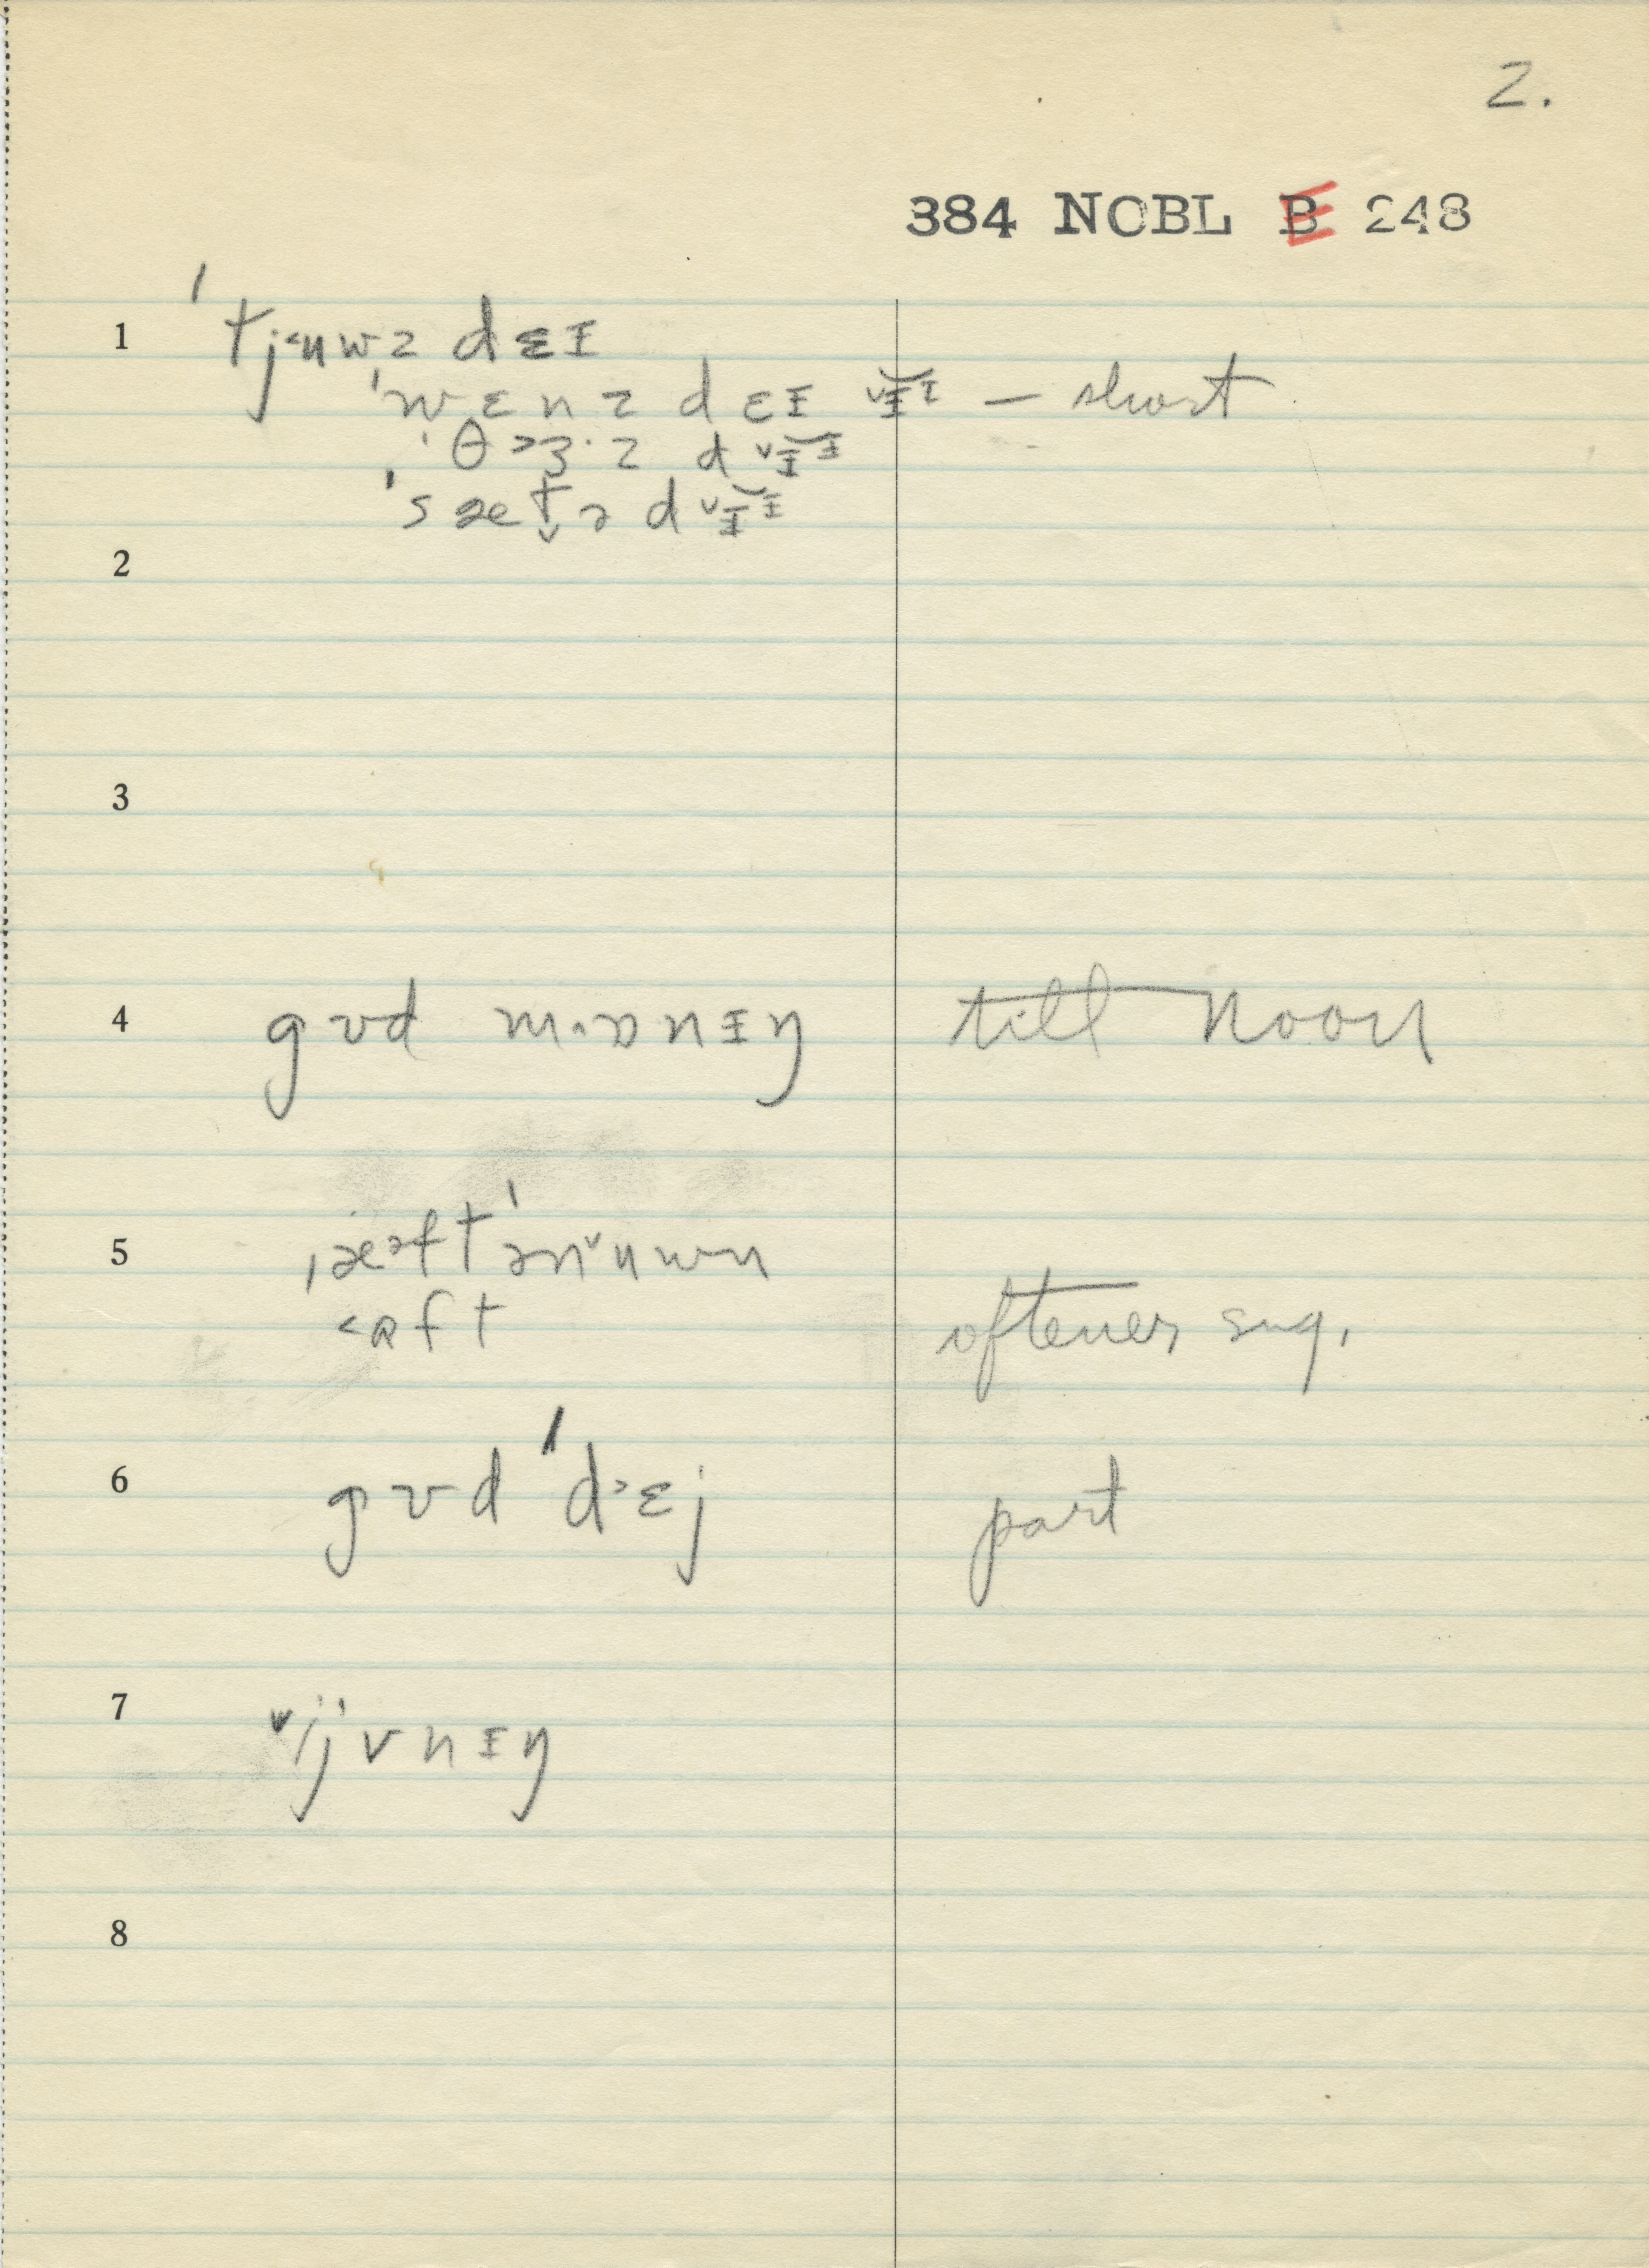 2.
384 NOBL E 248
1 ˈtj˂uwz dɛɪ
ˈwɛnz dɛɪ ˅ɪɪ – short
ˈθ˃ɜ·z d˅ɪɪ
ˈsæt̬ə d˅ɪɪ
2
3
4 gʊd m·ɒnɪŋ till noon
5 ˌæᵊftˈən˅uwn
˂ɑft oftener sug.
6 gʊd ˈd˃ɛj part
7 ˅ˈijvnɪŋ
8